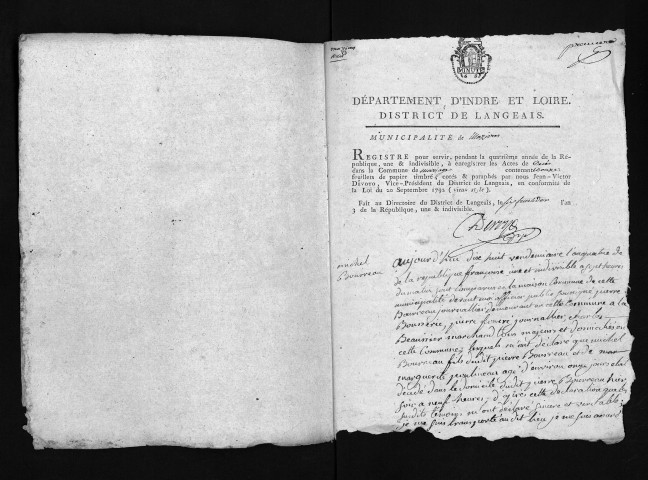 DÉPARTEMENT D'INDRE ET LOIRE.
DISTRICT DE LANGEAIS.
MUNICIPALITÉ de
REGISTRE pour servir, pendant la quatrième année de la Ré-
publique, une & indivisible, à enregistrer les Actes de
dans la Commune de contenant
feuillets de papier timbré, cotés & paraphés par nous Jean-Victor
Vice-Président du District de Langeais, en conformité de
la Loi du 20 Septembre 1792 (vieux style).
Fait au Directoire du District de Langeais, le l'an
3 de la République, une & indivisible.
michel
Bourreau
aujourd'hui dix huit vendemiaire l'an quatre de
de la republique françoise une et indivisible a sept heures
du matin sont comparus en la maison Commune de cette
municipalité devant moi officier public soussigné pierre
Bourreau journallier demeurant en cette Commune a la
pierre journallier, charles
Beaurier marchand tous majeurs et domiciliés en
cette Commune lesquels m'ont déclaré que michel
Bourreau fils dudit pierre Bourreau et de
marguerite agé d'environ onze jours est
décédé dans le domicile dudit pierre Bourreau hier
soir a neuf heures, d'après cette déclaration que les
susdits témoins m'ont déclaré sincere et veritable
je me suis transporté au dit lieu je me suis assuré